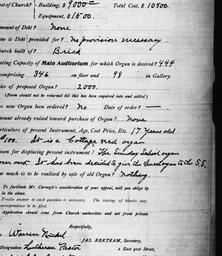 st of Church? - Building, $9000 — Total Cost, $10500
Equipment, $1500
mount of Debt? None
ow is Debt provided for? No provision necessary
hurch built of? Brick
ting Capacity of Main Auditorium for which Organ is desired? 444
mprising 346 on floor and 98 in Gallery.
ice of proposed Organ? 2000.
(Form should not be returned till this has been enquired into and settled.)
new Organ been ordered? No Date of order? —
mount already raised toward purchase of Organ? None
articulars of present Instrument, Age, Cost Price, Etc. 17 years old
$100. It is a Cottage reed organ
son for displacing present instrument? The Sunday School organ
worn out. It has been decided to give the Church organ to the S.S.
ow much is to be realized by sale of old Organ? Nothing.
To facilitate Mr. Carnegie's consideration of your appeal, will you oblige by
in the above.
Precise answer to each question is necessary. The issuing of Blanks may
correspondence to be filed.
Application should come from Church authorities and not from private
JAS. BERTRAM, Secretary,
Designation, Lutheran Pastor 2 East 91st Street,